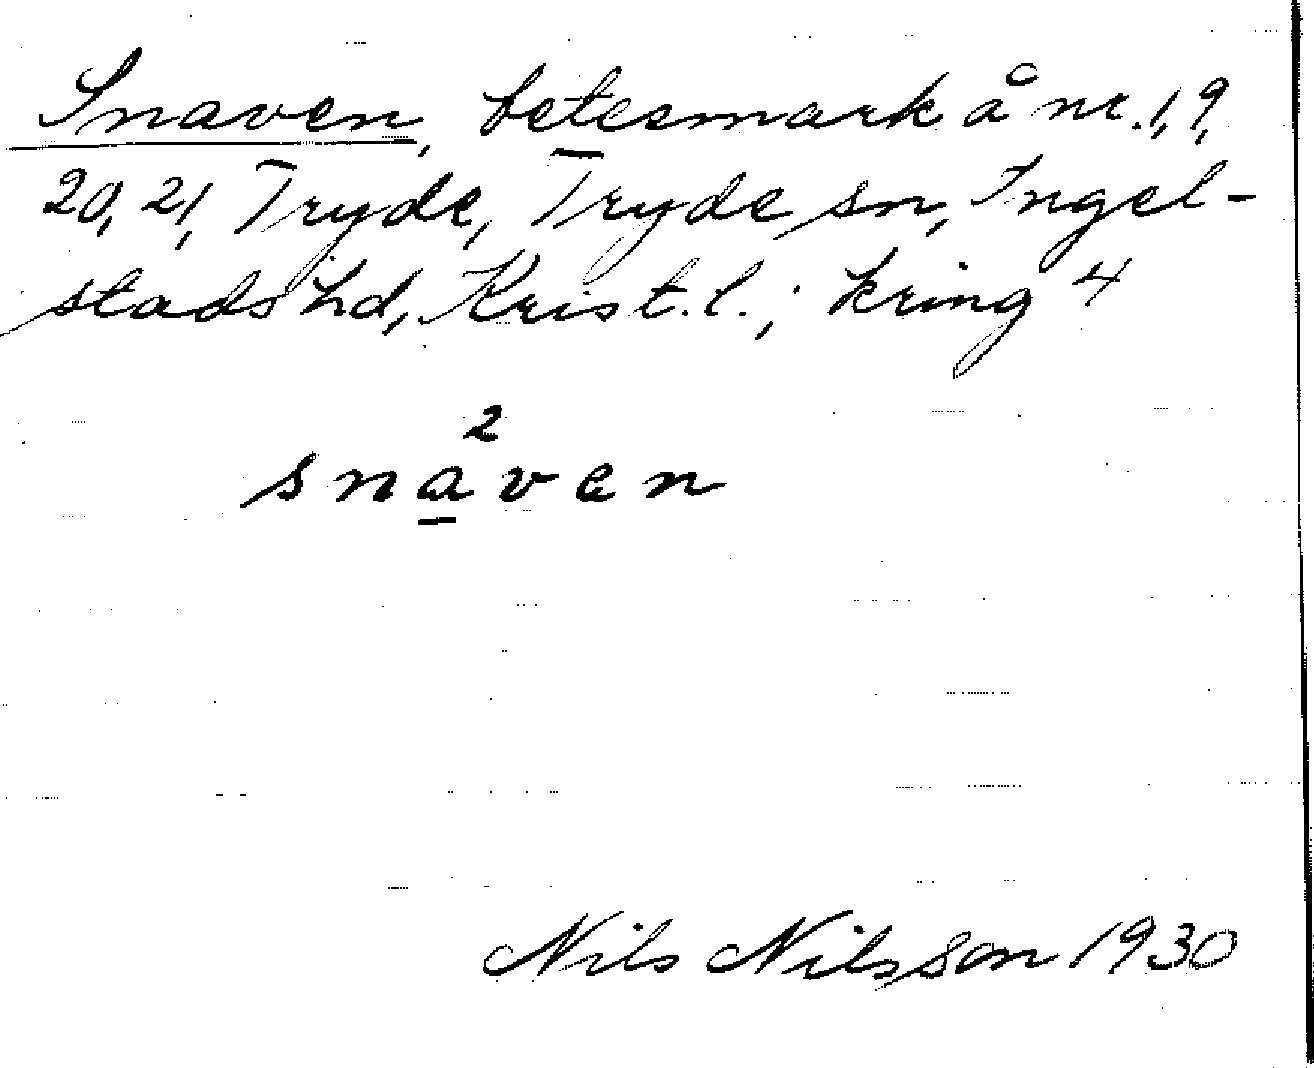 Snaven, betesmark å nr. 1, 9,
20, 21, Tryde, Tryde sn, Ingel-
stads hd, Krist. l.; kring 4
2
snaven
Nils Nilsson 1930